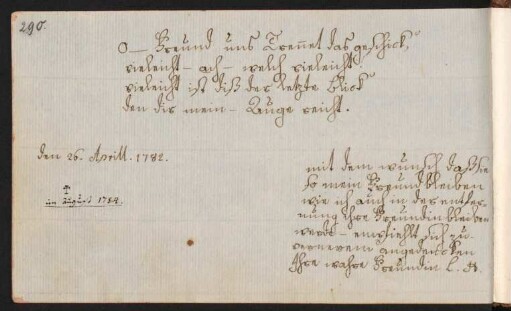 290.
O – Freund uns Trennet das geschick,
vieleicht – ach – welch vieleicht
vieleicht ist diß der letzte blick
den dir mein – Auge reicht.
den 26. Aprill. 1782.
†
im august 1784.
mit dem wunsch daß sie
so mein Freund bleiben
wie ich auch in der entfer-
nung ihre Freundin bleiben
werde – empfiehlt sich zu
fernerem angedencken
Ihre wahre Freundin L. H.